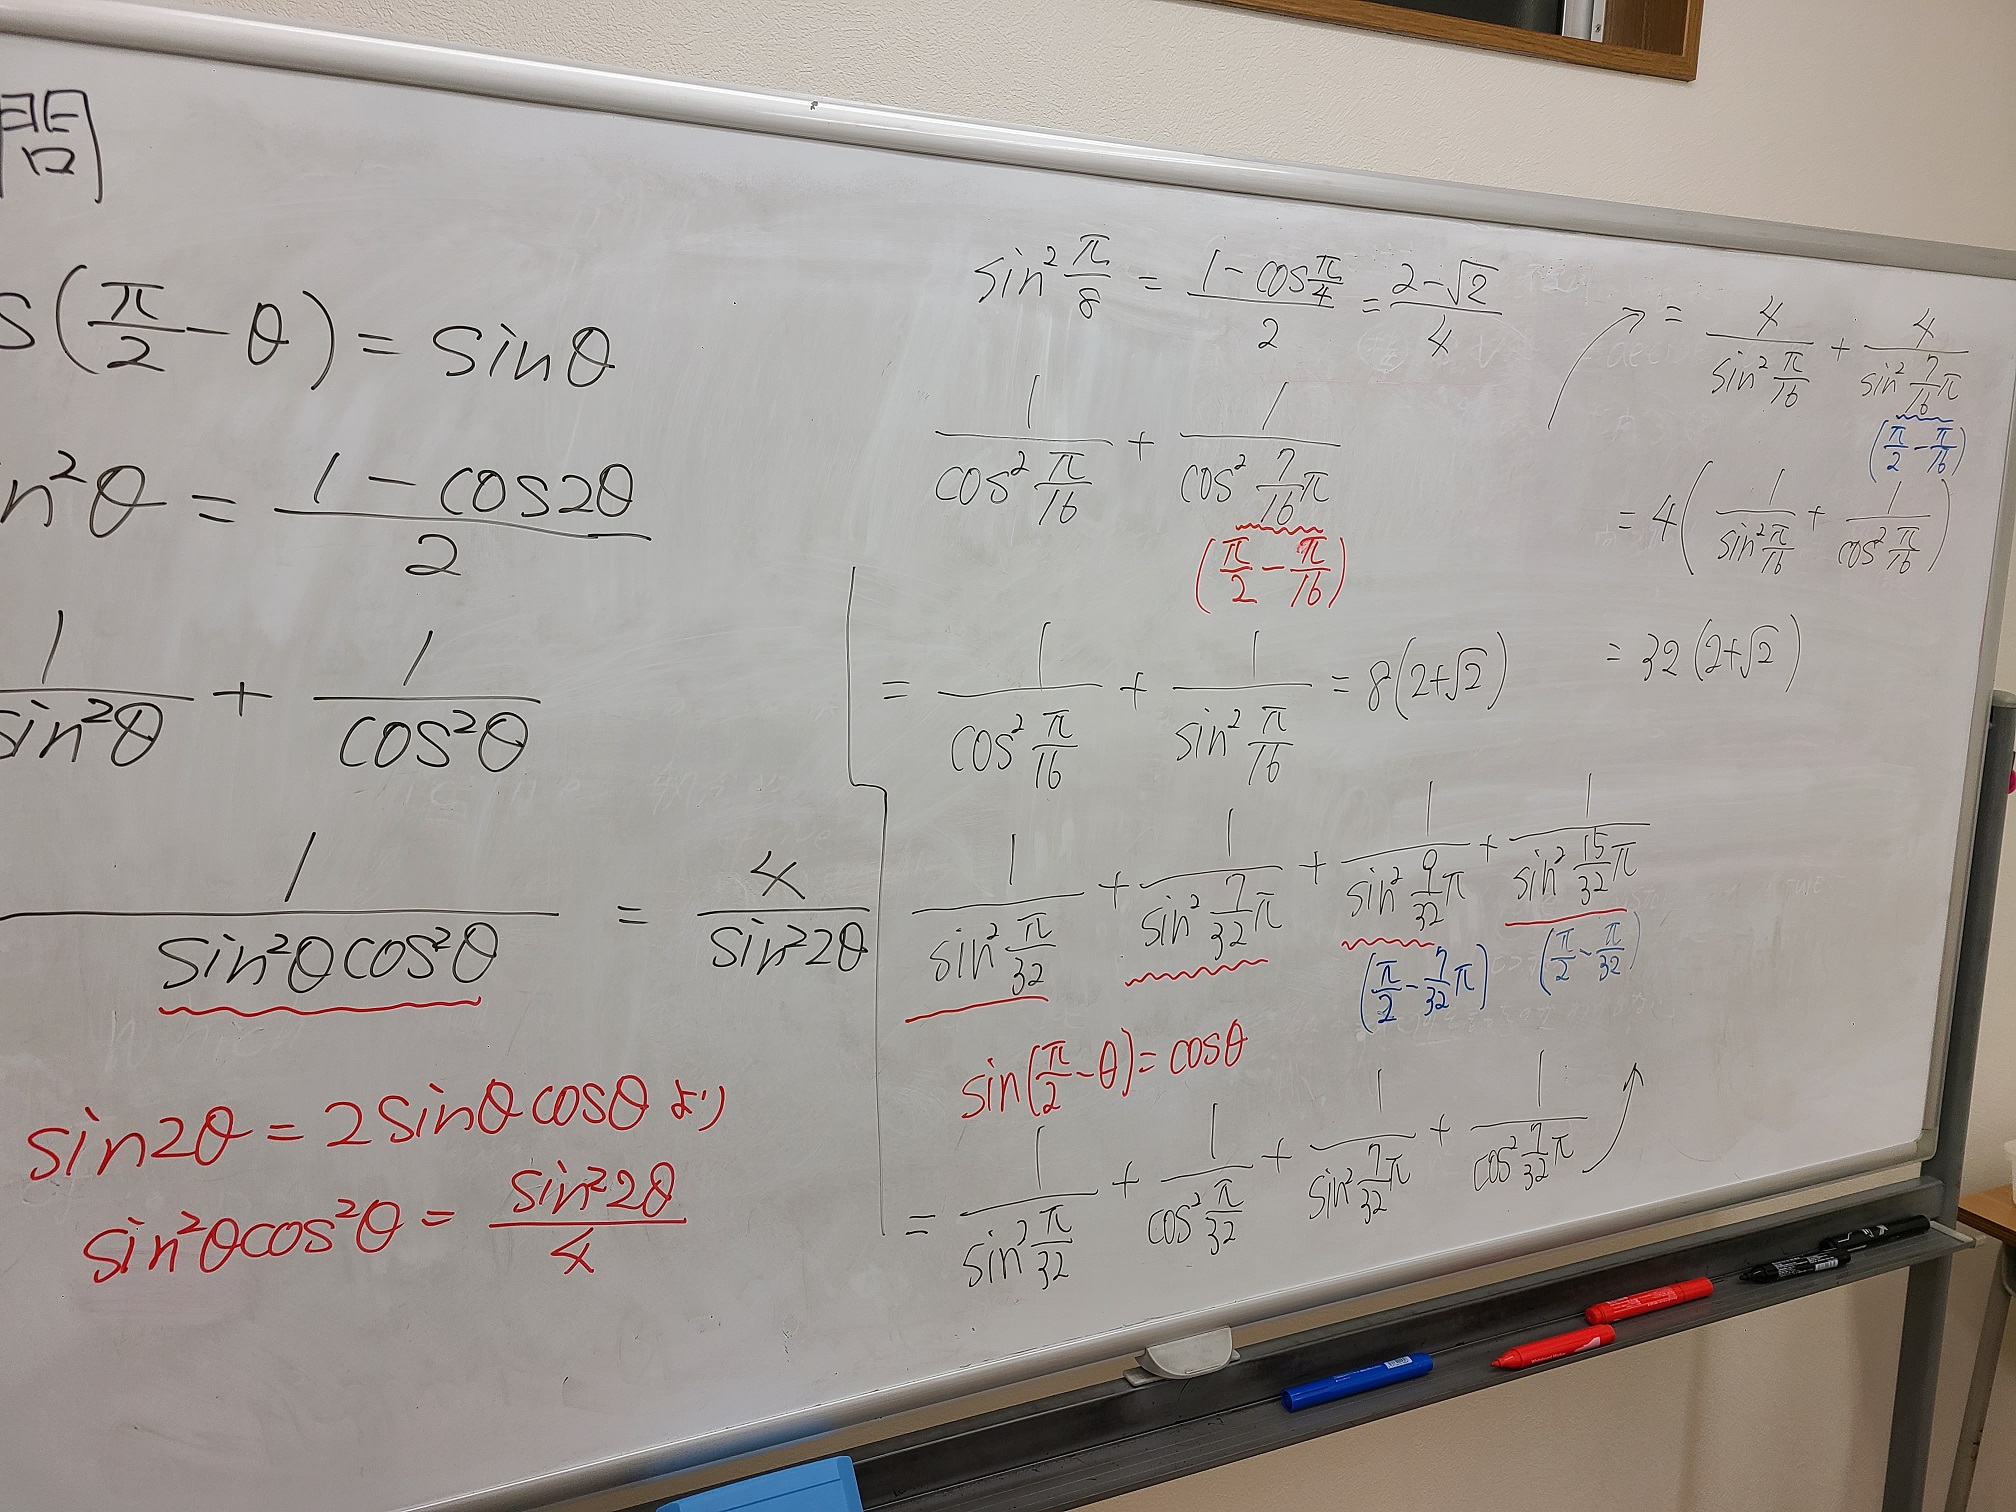 問
s(π/2 − θ) = sinθ
n²θ = (1 − cos2θ)/2
1/sin²θ + 1/cos²θ
1/(sin²θcos²θ) = 4/sin²2θ
sin2θ = 2sinθcosθ より
sin²θcos²θ = sin²2θ/4
sin² π/8 = (1 − cos π/4)/2 = (2 − √2)/4
1/(cos² π/16) + 1/(cos² 7/16 π)
(π/2 − π/16)
= 1/(cos² π/16) + 1/(sin² π/16) = 8(2+√2)
1/(sin² π/32) + 1/(sin² 7/32 π) + 1/(sin² 9/32 π) + 1/(sin² 15/32 π)
(π/2 − 7/32 π) (π/2 − π/32)
sin(π/2 − θ) = cosθ
= 1/(sin² π/32) + 1/(cos² π/32) + 1/(sin² 7/32 π) + 1/(cos² 7/32 π)
= 4/(sin² π/16) + 4/(sin² 7/16 π)
(π/2 − π/16)
= 4(1/(sin² π/16) + 1/(cos² π/16))
= 32(2+√2)